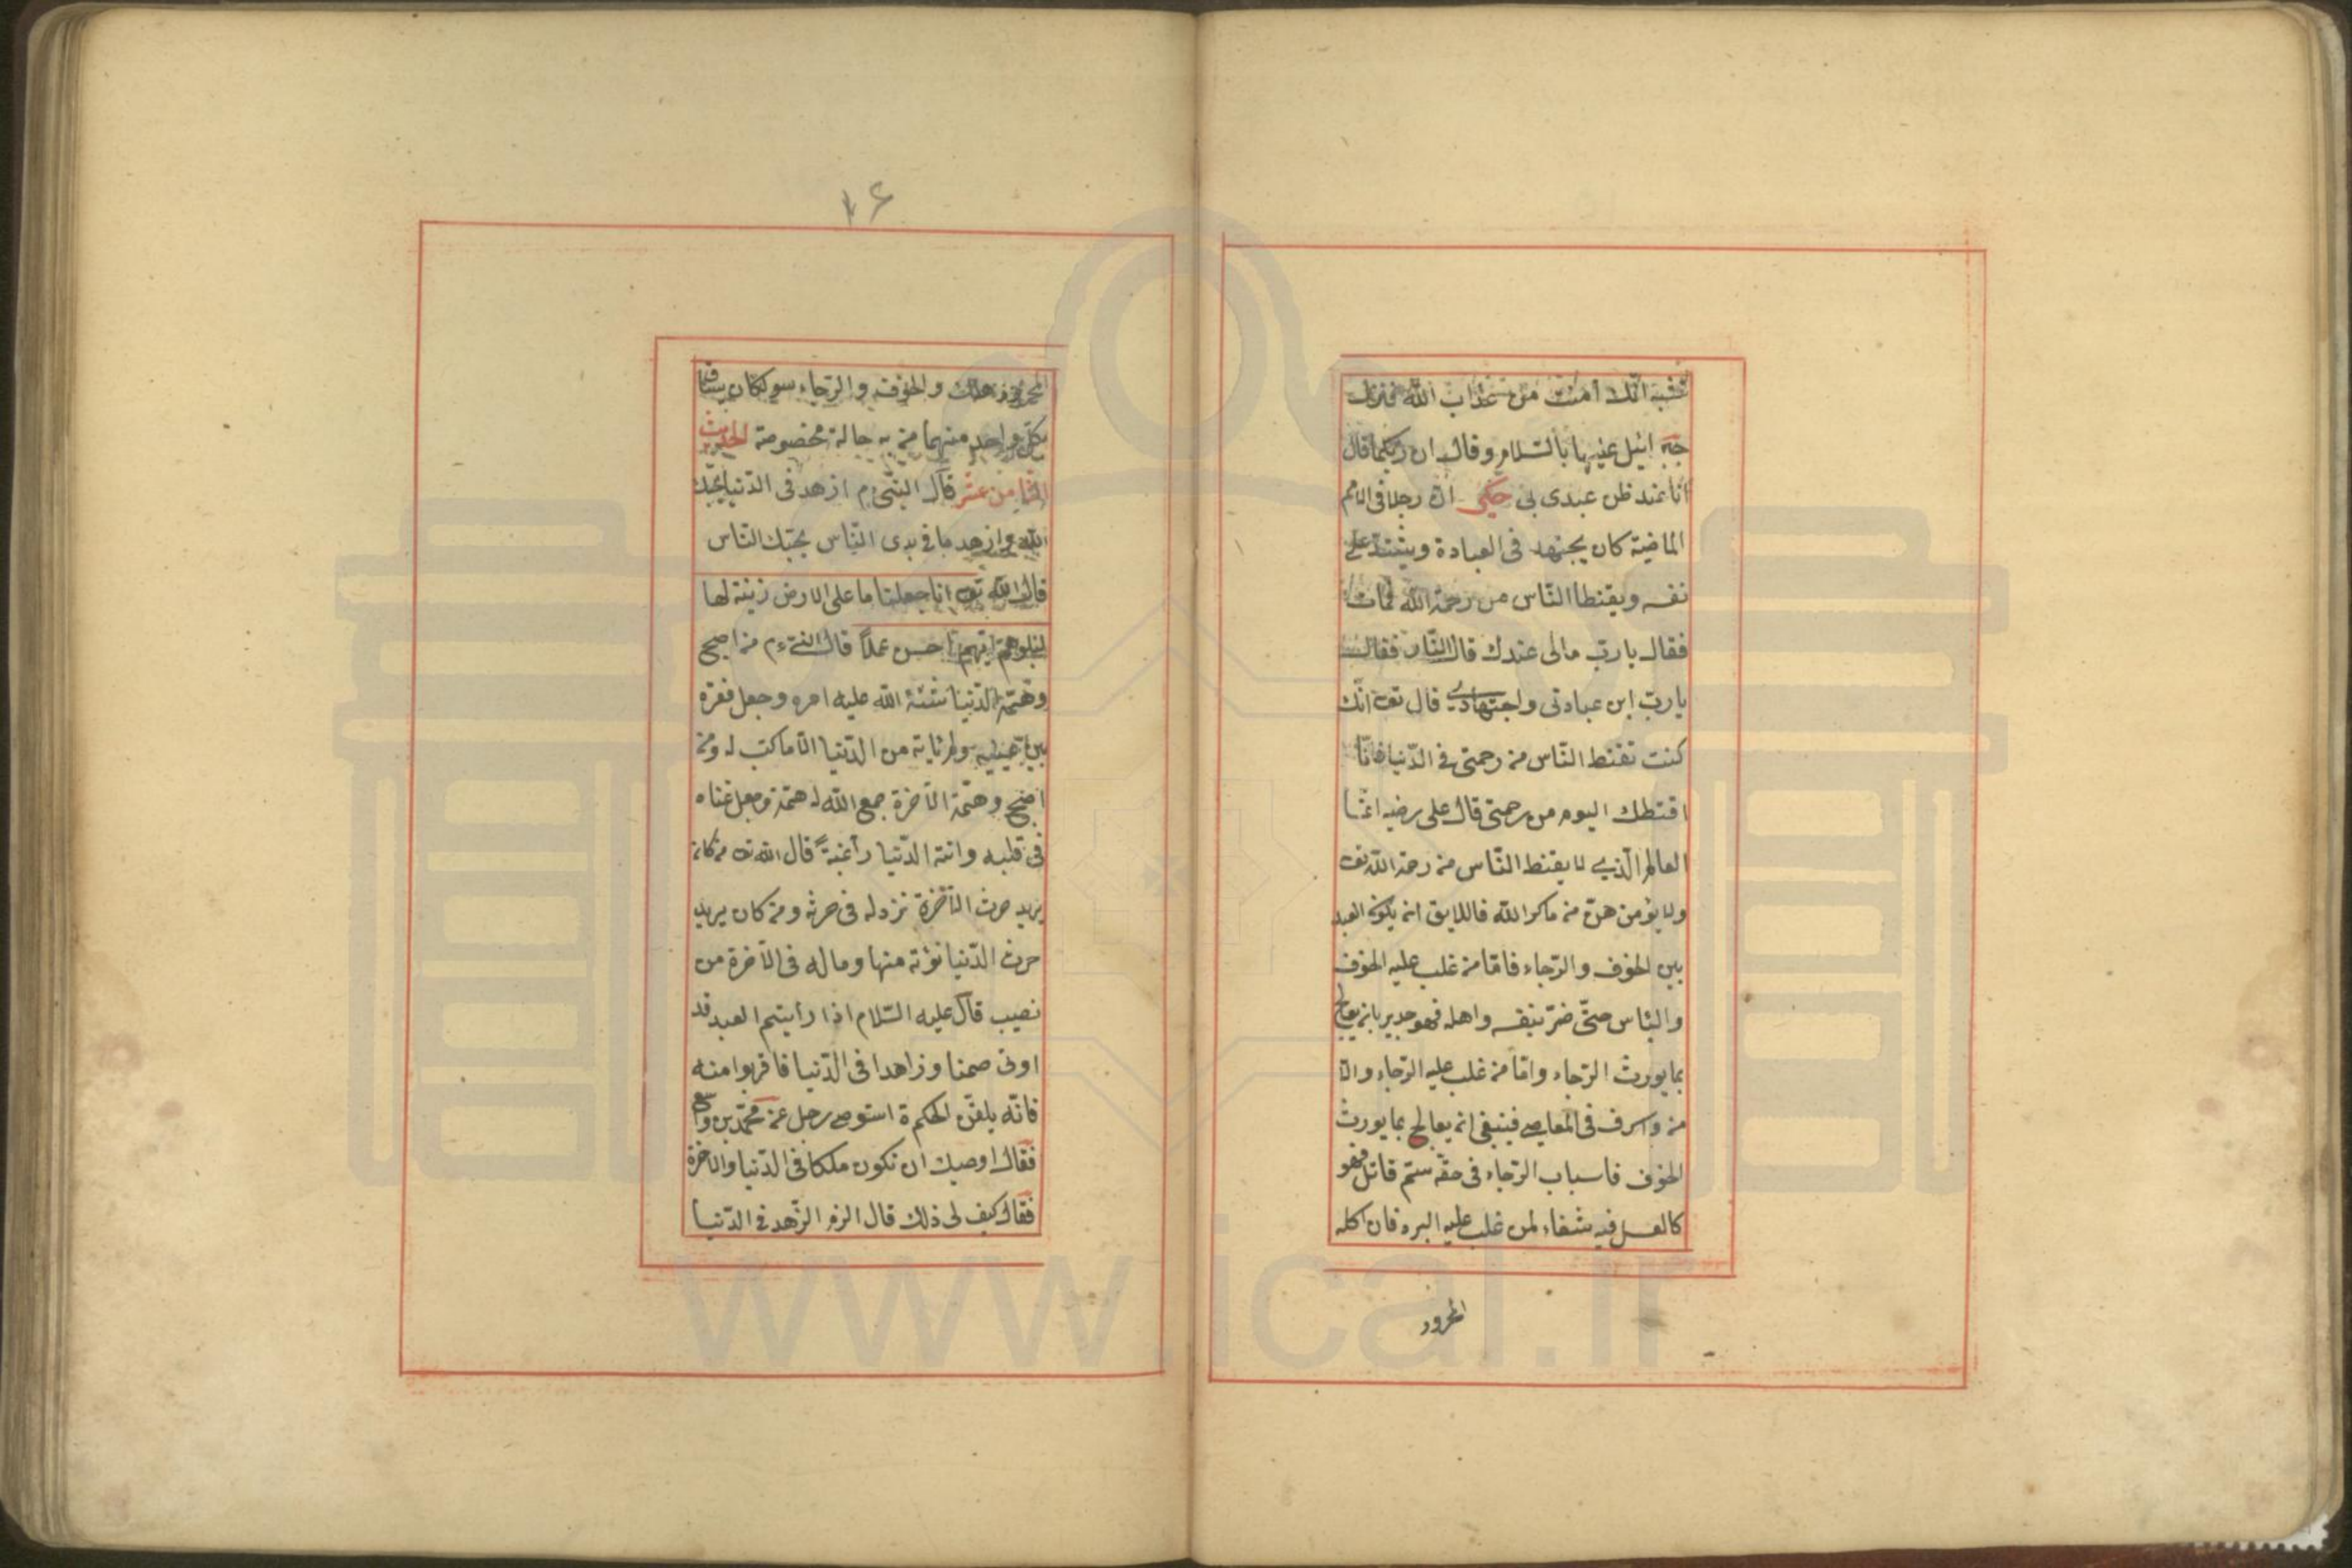 انك أمنت من عذاب الله فنزل
جبرائيل عليهما بالسلام وقال ان ربكما قال
انا عند ظن عبدى بى حكى ان رجلا فى الامم
الماضية كان يجتهد فى العبادة ويشدد على
نفسه ويقنط الناس من رحمة الله فمات
فقال يا رب مالى عندك قال النار فقال
يا رب اين عبادتى واجتهادى قال تع انك
كنت تقنط الناس من رحمتى فى الدنيا فانا
اقنطك اليوم من رحمتى قال على رضيه انما
العالم الذى لا يقنط الناس من رحمة الله تع
ولا يؤمن من مكر الله فاللايق ان يكون العبد
بين الخوف والرجاء فاما من غلب عليه الخوف
والياس حتى ضر بنفسه واهله فهو جدير بان يعالج
بما يورث الرجاء واما من غلب عليه الرجاء والا
من واسرف فى المعاصى فينبغى ان يعالج بما يورث
الخوف فاسباب الرجاء فى حقه ستم قاتل فهو
كالعسل فيه شفاء لمن غلب عليه البرد فان اكله
المحرور
١٦
المحرور هلك والخوف والرجاء
بكل واحد منهما مرتبة حالة مخصوصة الحديث
الثامن عشر قال النبى م ازهد فى الدنيا يحبك
الله وازهد ما فى يدى الناس يحبك الناس
قال الله تع انا جعلنا ما على الارض زينة لها
لنبلوهم ايهم احسن عملا قال النبى م من اصبح
وهمته الدنيا شتت الله عليه امره وجعل فقره
بين عينيه ولم ياته من الدنيا الا ما كتب له ومن
اصبح وهمته الاخرة جمع الله له همته وجعل غناه
فى قلبه واتته الدنيا راغبة قال الله تع من كان
يريد حرث الاخرة نزد له فى حرثه ومن كان يريد
حرث الدنيا نؤته منها وما له فى الاخرة من
نصيب قال عليه السلام اذا رأيتم العبد قد
اوتى صمتا وزاهدا فى الدنيا فاقربوا منه
فانه يلقن الحكمة استوصى رجل عن محمد بن واسع
فقال اوصيك ان تكون ملكا فى الدنيا والاخرة
فقال كيف لى ذلك قال الزم الزهد فى الدنيا
www.ical.ir